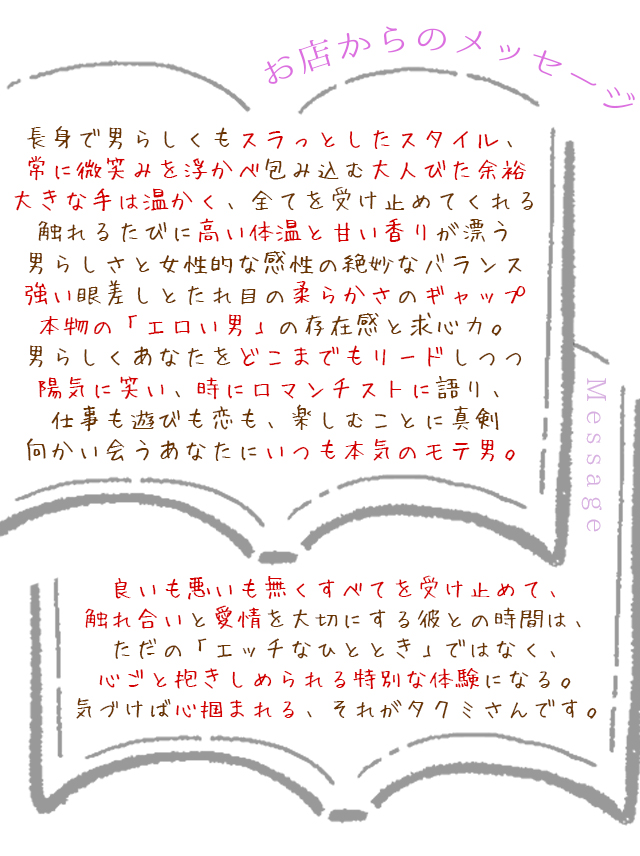 お店からのメッセージ
長身で男らしくもスラっとしたスタイル、
常に微笑みを浮かべ包み込む大人びた余裕
大きな手は温かく、全てを受け止めてくれる
触れるたびに高い体温と甘い香りが漂う
男らしさと女性的な感性の絶妙なバランス
強い眼差しとたれ目の柔らかさのギャップ
本物の「エロい男」の存在感と求心力。
男らしくあなたをどこまでもリードしつつ
陽気に笑い、時にロマンチストに語り、
仕事も遊びも恋も、楽しむことに真剣
向かい会うあなたにいつも本気のモテ男。
Message
良いも悪いも無くすべてを受け止めて、
触れ合いと愛情を大切にする彼との時間は、
ただの「エッチなひととき」ではなく、
心ごと抱きしめられる特別な体験になる。
気づけば心掴まれる、それがタクミさんです。